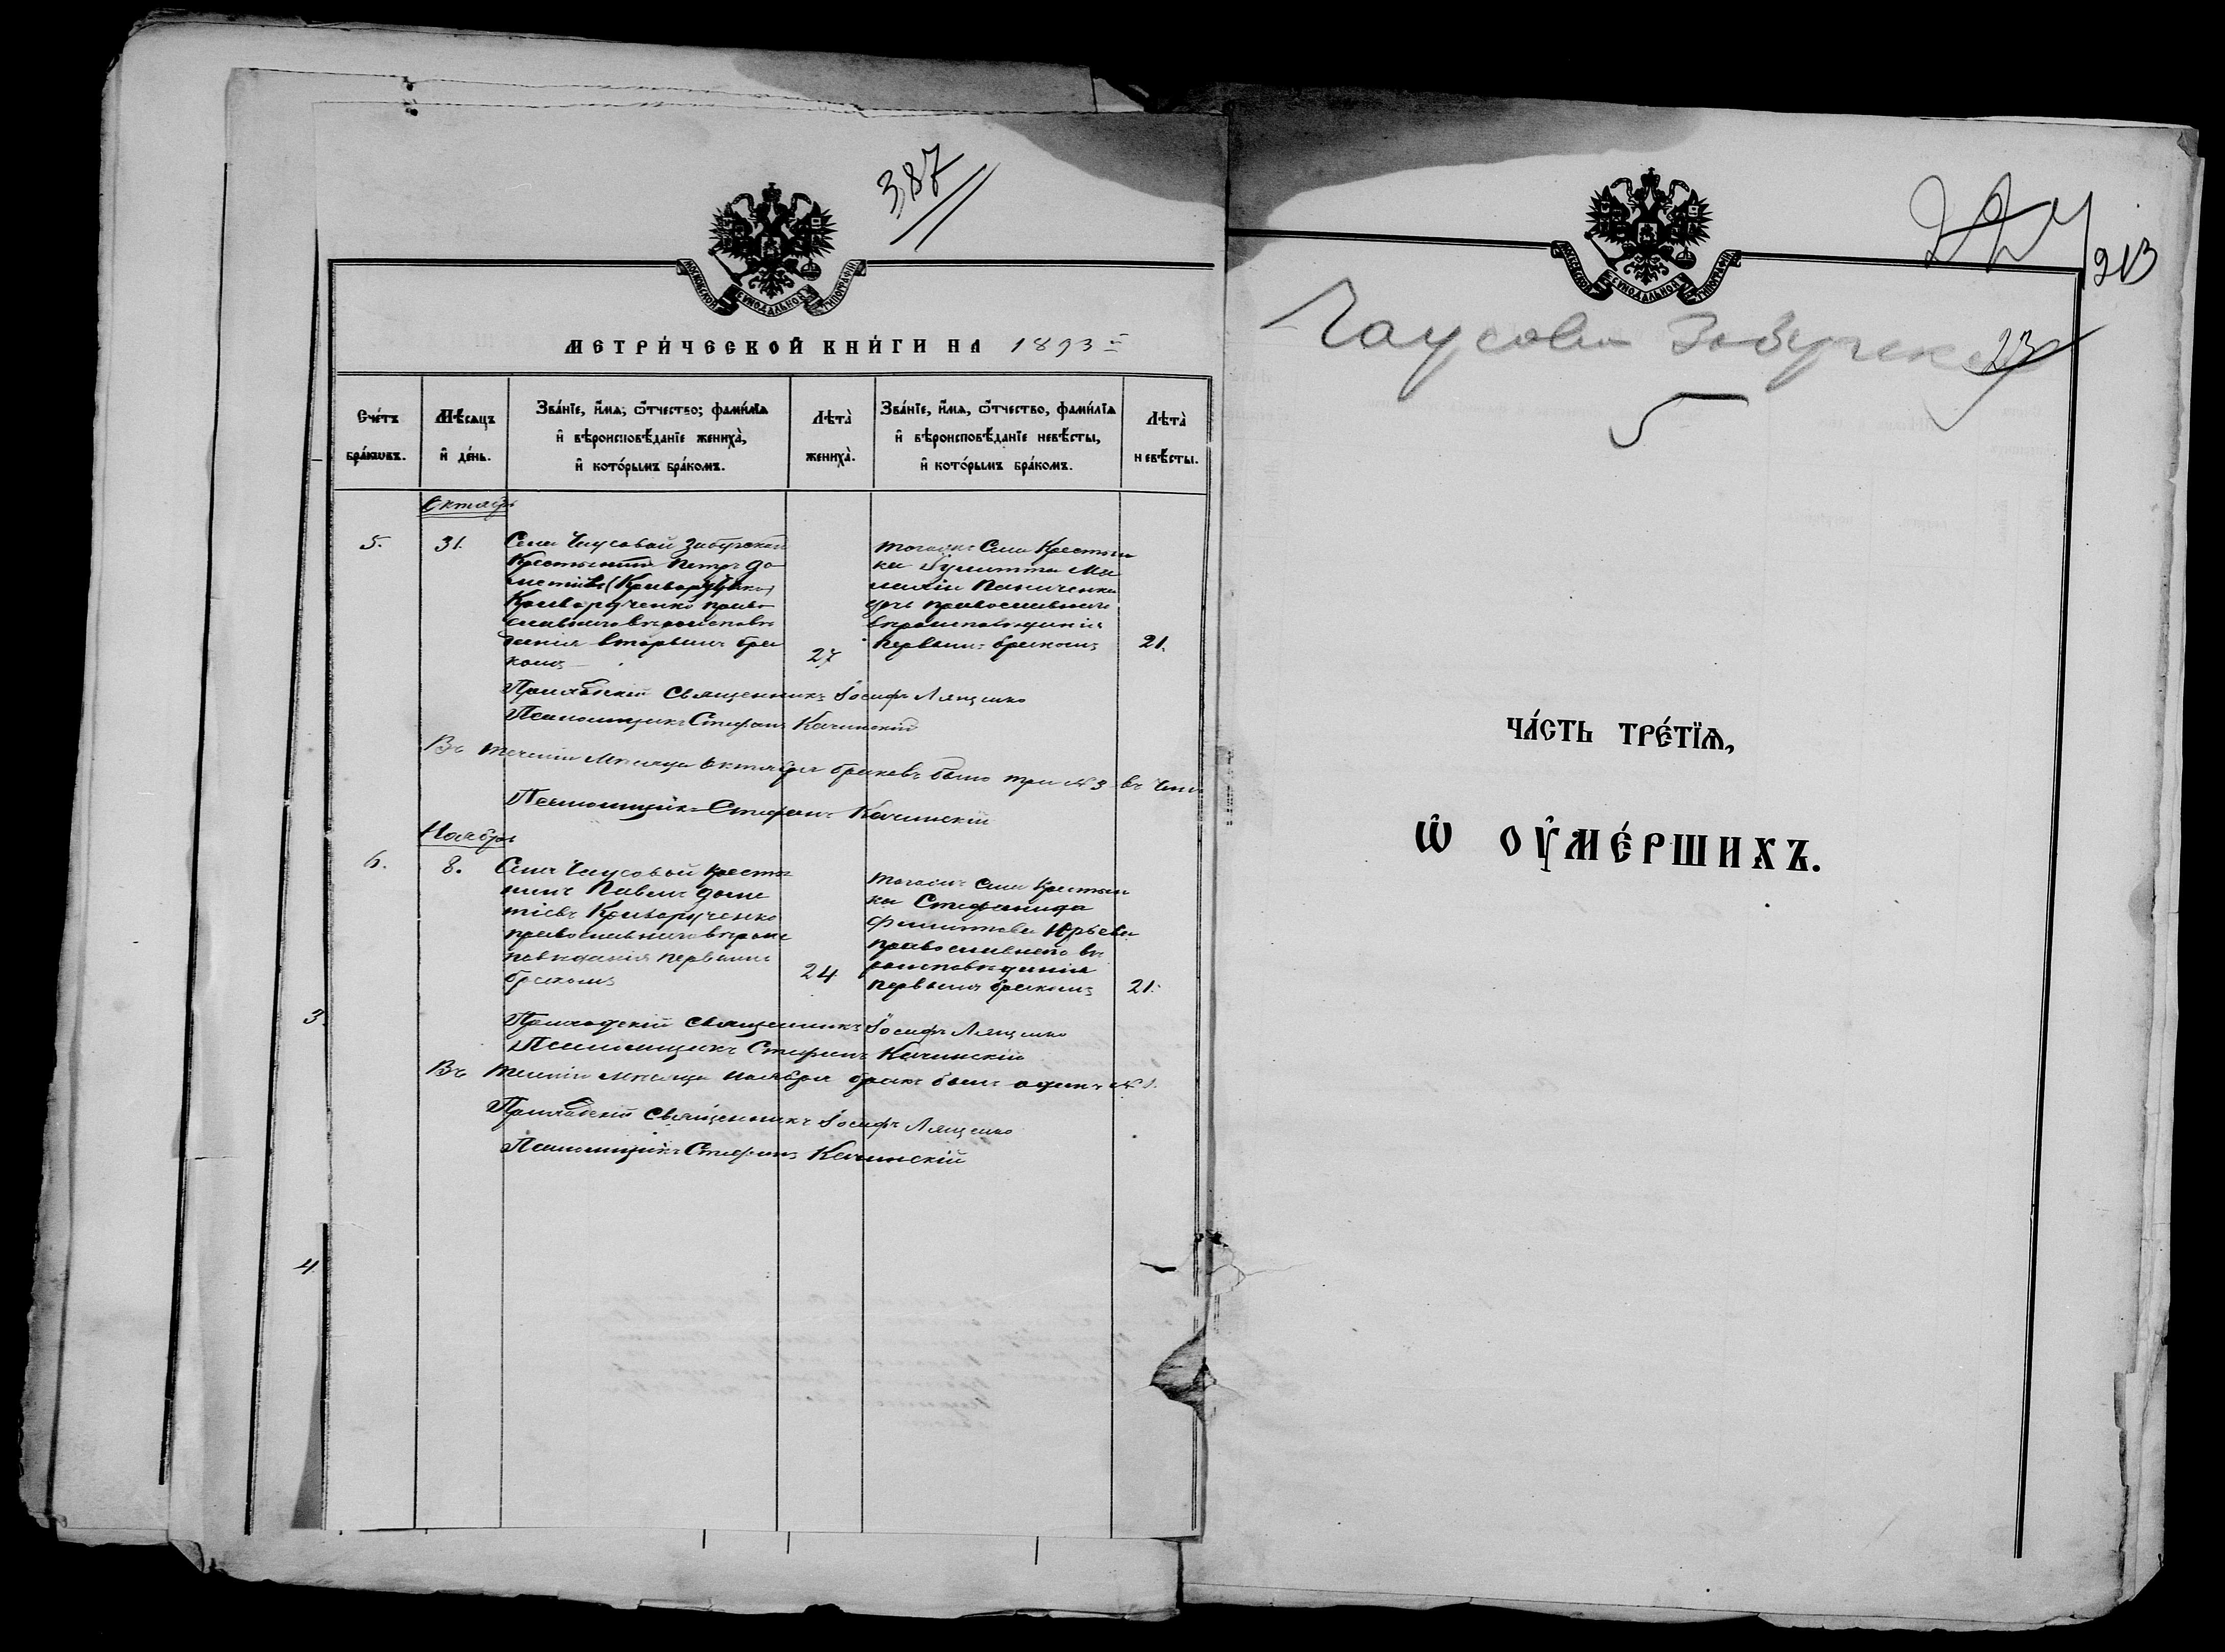 387
МОСКОВСКОЙ СѴНОДАЛЬНОЙ ТИПОГРАФІИ
МЕТРИ́ЧЕСКОЙ КНИ́ГИ НА 1893
Сче́тъ бра́кѡвъ.
Мѣ́сѧцъ и҆ де́нь.
Зва́нїе, и҆́мѧ, ѻ҆́тчество, фамѝлїѧ и҆ вѣроисповѣ́данїе жениха̀, и҆ кото́рымъ бра́комъ.
Лѣта̀ жениха̀.
Зва́нїе, и҆́мѧ, ѻ҆́тчество, фамѝлїѧ и҆ вѣроисповѣ́данїе невѣ́сты, и҆ кото́рымъ бра́комъ.
Лѣта̀ невѣ́сты.
Октябрь
5.
31.
Села Чаусовой Забугской
Крестьянинъ Петръ До
Криворученко право
славнаго вѣроисповѣ
данія вторымъ бра
комъ
27
тогожъ Села Крестьян
ка
православнаго
вѣроисповѣданія
первымъ бракомъ
21.
Приходскій Священникъ Іосифъ Лященко
Псаломщикъ Стефанъ Качинскій
Въ теченіи мѣсяца Октября браковъ было три №3
Псаломщикъ Стефанъ Качинскій
Ноябрь
6.
8.
Села Чаусовой Кресть
нинъ Павелъ Доме
тіевъ Криворученко
православнаго вѣроис
повѣданія первымъ
бракомъ
24
тогожъ Села Крестьян
ка Стефанида
Филиппова Юрьева
православнаго вѣ
роисповѣданія
первымъ бракомъ
21.
Приходскій Священникъ Іосифъ Лященко
Псаломщикъ Стефанъ Качинскій
Въ теченіи мѣсяца Ноября бракъ былъ одинъ №1.
Приходскій Священникъ Іосифъ Лященко
Псаломщикъ Стефанъ Качинскій
3.
4.
МОСКОВСКОЙ СѴНОДАЛЬНОЙ ТИПОГРАФІИ
213
23
5
ЧА́СТЬ ТРЕ́ТЇѦ,
Ѡ҆ ОУ҆МЕ́РШИХЪ.